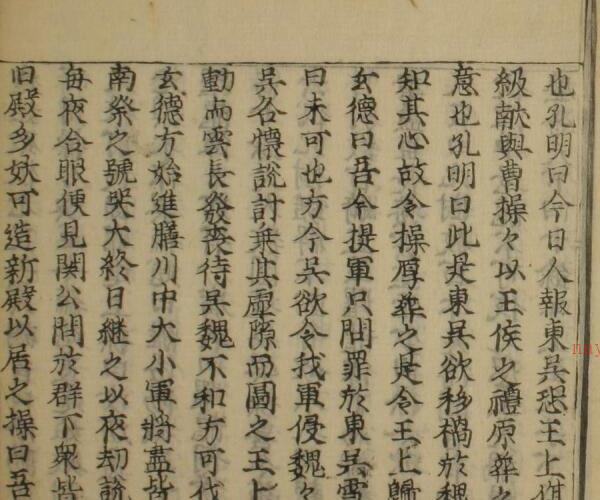 也孔明曰今日人報東吳恐王上
級献與曹操々以王侯之禮原葬之
意也孔明曰此是東吳欲移禍於魏
知其心故令操厚葬之是令王上歸
玄德曰吾今提軍只問罪於東吳雪
曰未可也方今吳欲令我軍侵魏々
吳各懷說計乗其虛隙而圖之王上
動而雲長發喪待吳魏不和方可伐
玄德方始進膳川中大小軍將盡皆
南祭之號哭大終日継之以夜却說
每夜合眼便見関公問於群下衆皆
旧殿多妖可造新殿以居之操曰吾